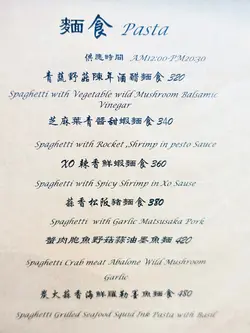 麵食 Pasta
供應時間 AM12:00-PM20:30
青蔬野菇陳年酒醋麵食 320
Spaghetti with Vegetable wild Mushroom Balsamic
Vinegar
芝麻葉青醬甜蝦麵食 340
Spaghetti with Rocket ,Shrimp in pesto Sauce
XO 辣香鮮蝦麵食 360
Spaghetti with Spicy Shrimp in Xo Sause
蒜香松阪豬麵食 380
Spaghetti with Garlic Matsusaka Pork
蟹肉鮑魚野菇蒜油墨魚麵 420
Spaghetti Crab meat Abalone Wild Mushroom
Garlic
炭火蒜香海鮮羅勒墨魚麵食 480
Spaghetti Grilled Seafood Squid Ink Pasta with Basil